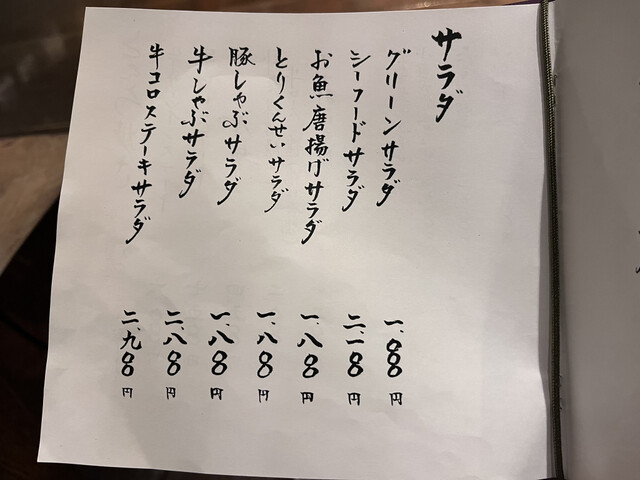 サラダ
グリーンサラダ 一、〇〇〇円
シーフードサラダ 二、一〇〇円
お魚唐揚げサラダ 一、八〇〇円
とりくんせいサラダ 一、八〇〇円
豚しゃぶサラダ 一、八〇〇円
牛しゃぶサラダ 二、八〇〇円
牛コロステーキサラダ 二、九〇〇円